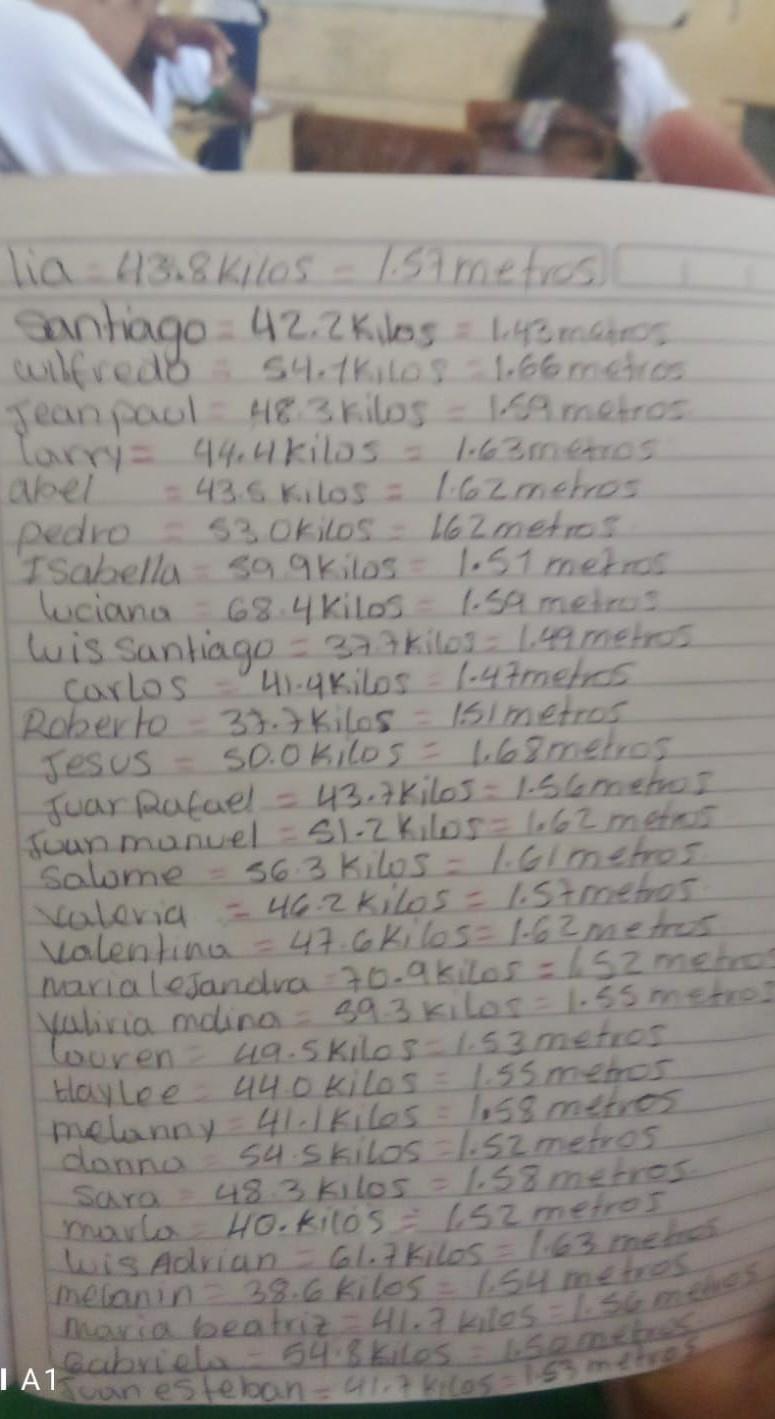 lia = 43.8 Kilos = 1.57 metros
Santiago = 42.2 Kilos = 1.43 metros
wilfredo = 54.1 Kilos = 1.66 metros
Jean paul = 48.3 Kilos = 1.59 metros
larry = 44.4 kilos = 1.63 metros
abel = 43.5 Kilos = 1.62 metros
pedro = 53.0 kilos = 162 metros
Isabella = 59.9 Kilos = 1.51 metros
luciana = 68.4 Kilos = 1.59 metros
luis santiago = 37.7 Kilos = 1.49 metros
carlos = 41.4 Kilos = 1.47 metros
Roberto = 37.7 Kilos = 151 metros
Jesus = 50.0 Kilos = 1.68 metros
Juar Rafael = 43.7 Kilos = 1.56 metros
Juan manuel = 51.2 Kilos = 1.62 metros
Salome = 56.3 Kilos = 1.61 metros
valeria = 46.2 Kilos = 1.57 metros
valentina = 47.6 Kilos = 1.62 metros
maria lejandra = 70.9 Kilos = 1.52 metros
valiria mdina = 39.3 kilos = 1.55 metros
louren = 49.5 Kilos = 1.53 metros
Haylee = 44.0 Kilos = 1.55 metros
melanny = 41.1 Kilos = 1.58 metros
danna = 54.5 Kilos = 1.52 metros
Sara = 48.3 Kilos = 1.58 metros
marla = 40. Kilos = 1.52 metros
luis Adrian = 61.7 Kilos = 1.63 metros
melanin = 38.6 Kilos = 1.54 metros
maria beatriz = 41.7 kilos = 1.56 metros
Gabriela = 54.8 Kilos = 1.50 metros
Juan esteban = 41.7 kilos = 1.53 metros
A1